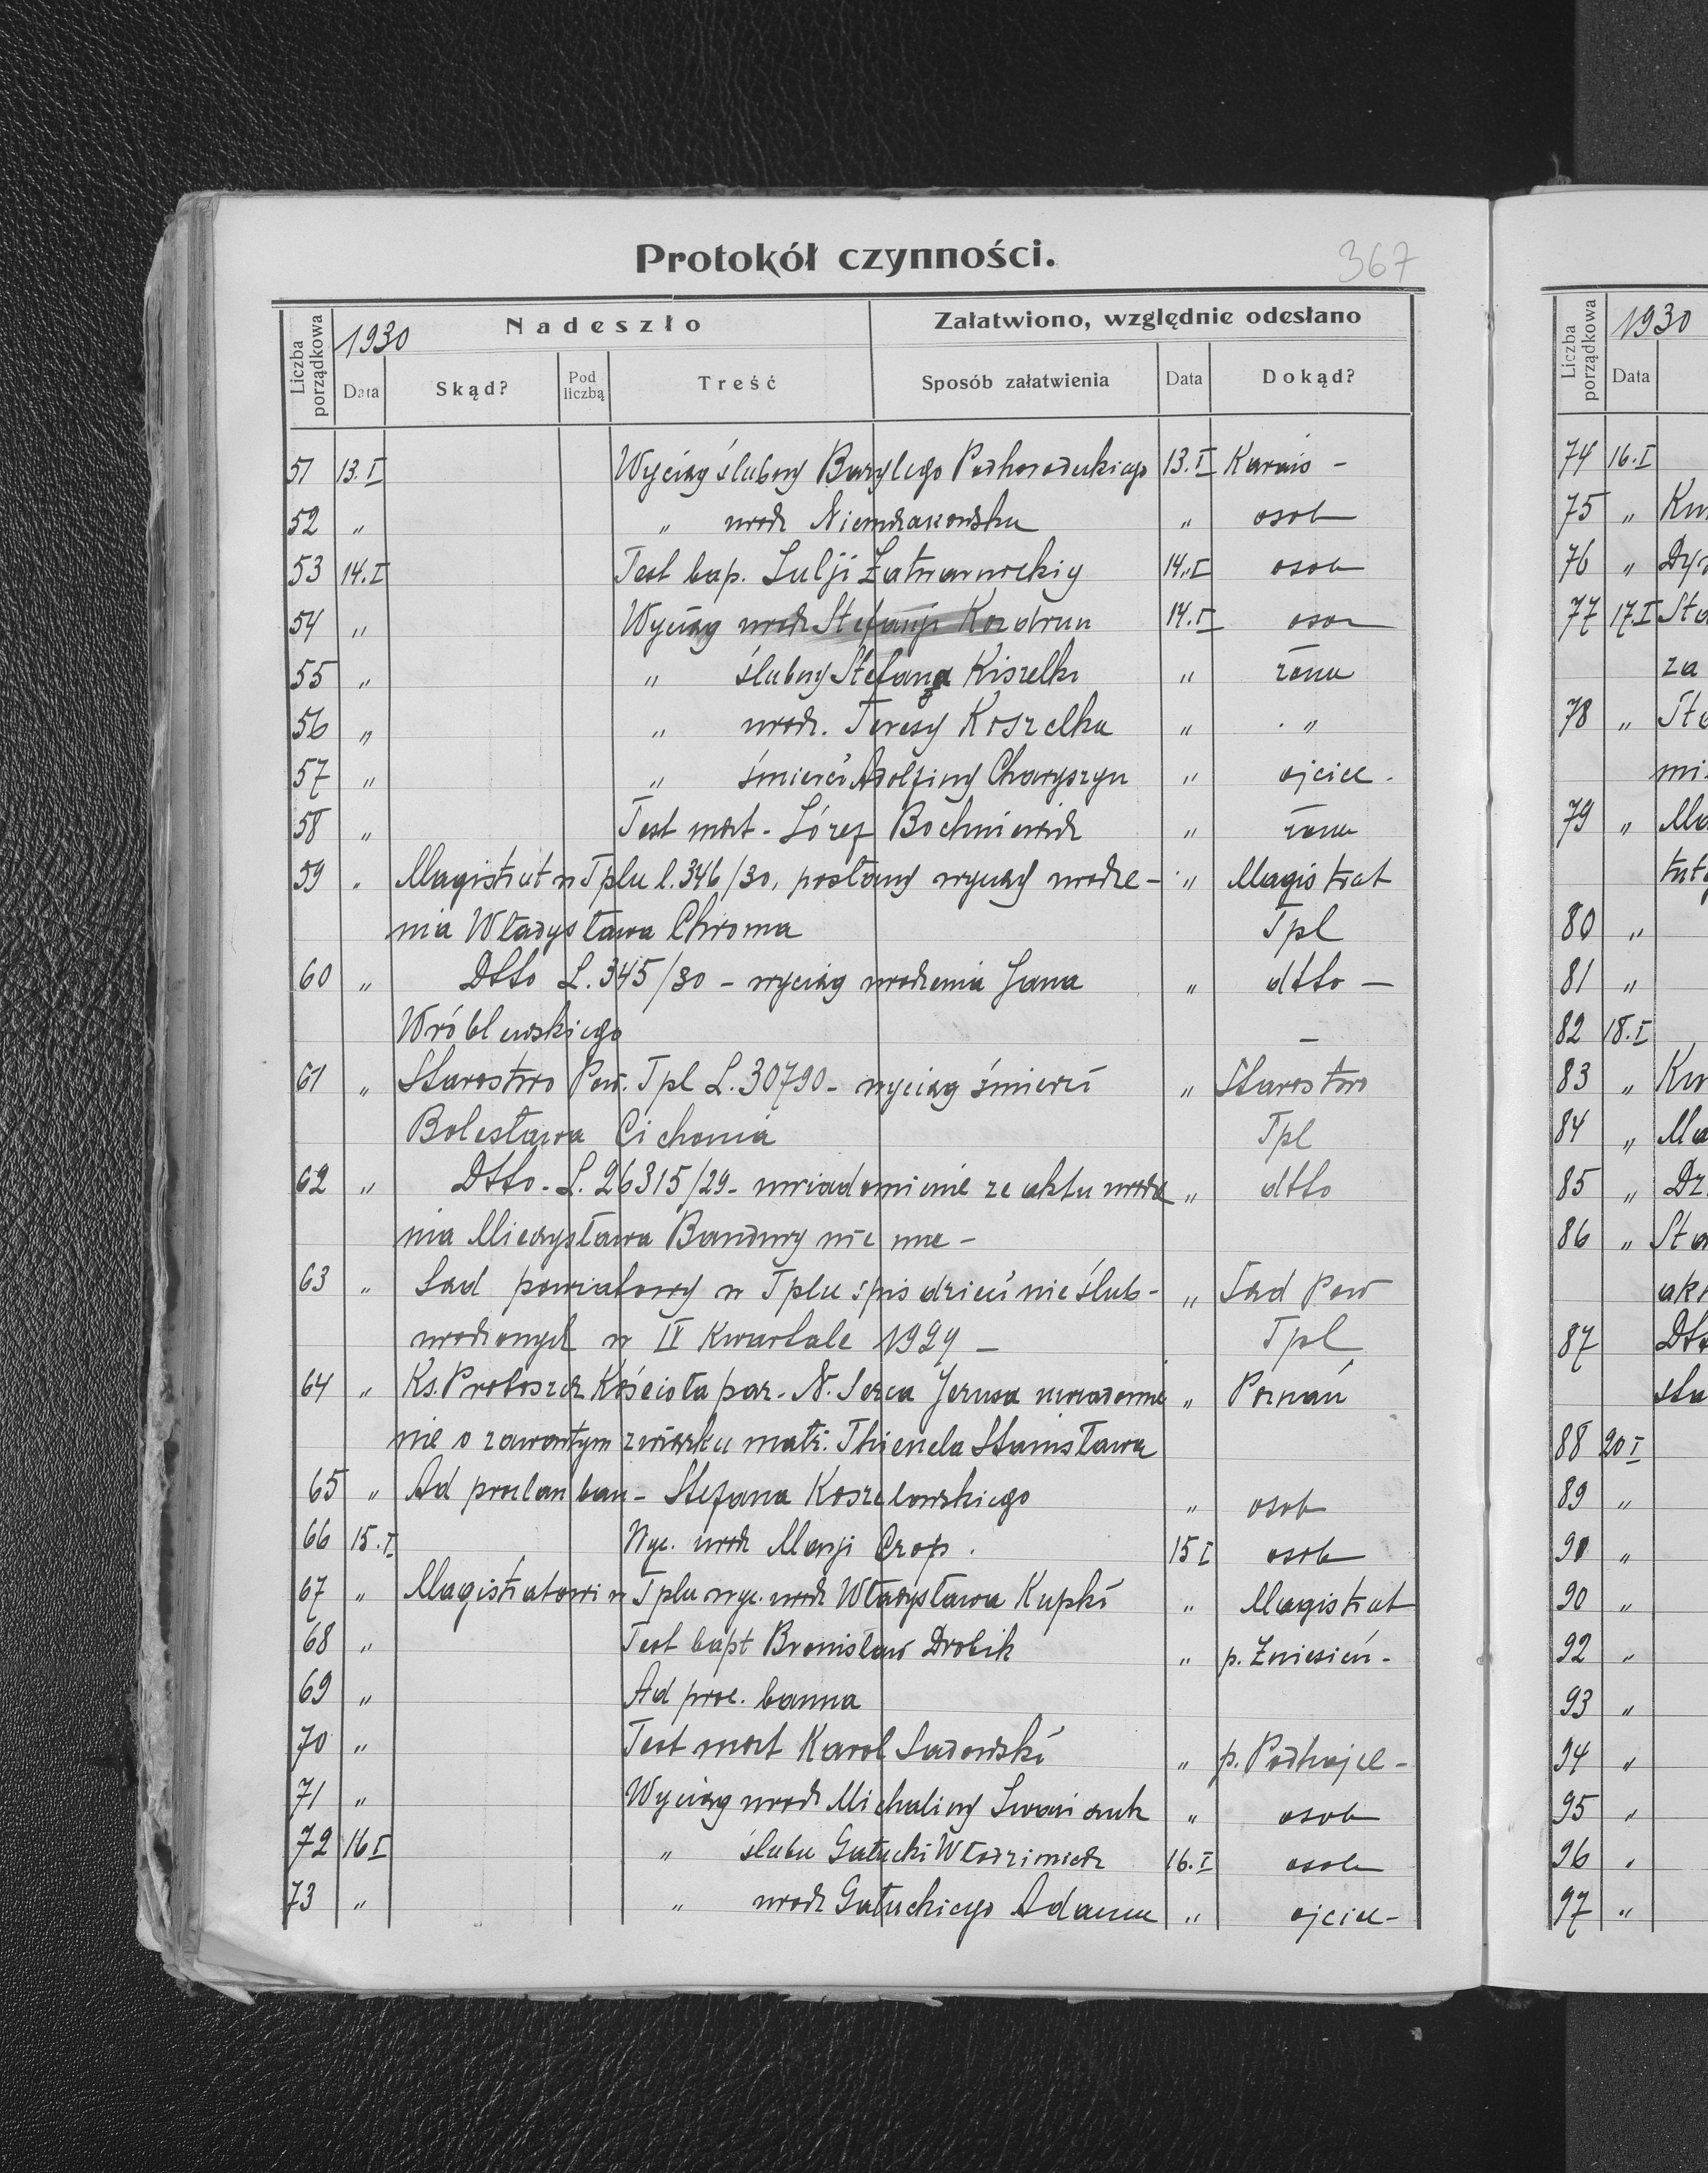 Protokół czynności.
367
Liczba porządkowa
1930
Nadeszło
Załatwiono, względnie odesłano
Data
Skąd?
Pod liczbą
Treść
Sposób załatwienia
Data
Dokąd?
51 13.I Wyciąg ślubny Bazylego Podhorodeckiego 13.I
52 " " urodz " osob
53 14.I Test bap. Julji 14.I osob
54 " Wyciąg urodz Stefanji 14.I osob
55 " " ślubny Stefana Kiszelki " żona
56 " " urodz. Teresy Koszelka " "
57 " " śmierci Adolfiny Charyszyn " ojciec.
58 " Test mort - Józef " żona
59 " Magistrat w Tplu l. 346/30, posłany wyciąg urodze- " Magistrat
nia Władysława Chroma Tpl
60 " Dtto L. 345/30 - wyciąg urodzenia Jana " dtto —
Wróblewskiego –
61 " Starostwo Pow. Tpl L. 30790 - wyciąg śmierci " Starostwo
Bolesława Cichonia Tpl
62 " Dtto - L. 26315/29 - uwiadomienie ze aktu urodze " dtto
nia Mieczysława Bandury nie ma -
63 " Sąd powiatowy w Tplu spis dzieci nieślub- " Sąd Pow
urodzonych w IV Kwartale 1929 - Tpl
64 " Ks. Proboszcz Kościoła par. N. Serca Jezusa uwiadomie " Poznań
nie o zawartym związku małż. Thienela Stanisława
65 " Ad proclam ban - Stefana Koszelowskiego " osob
66 15.I Wyc. urodz Marji Czop. 15 I osob
67 " Magistratowi w Tplu wyc. urodz Władysława Kupki " Magistrat
68 " Test bapt Bronisław Drobik " p. Zniesień -
69 " Ad proc. banna
70 " Test mort Karol Sadowski " p. Podhajce -
71 " Wyciąg urodz Michaliny " osob
72 16 I " ślubu Gałucki Włodzimierz 16.I osob
73 " " urodz Gałuckiego Adama " ojciec -
Liczba porządkowa
1930
Data
74 16.I
75 "
76 "
77 17.I
za
78 "
79 "
80 "
81 "
82 18.I
83 "
84 "
85 "
86 "
87
88 20 I
89 "
90 "
92 "
93 "
94 "
95 "
96 "
97 "